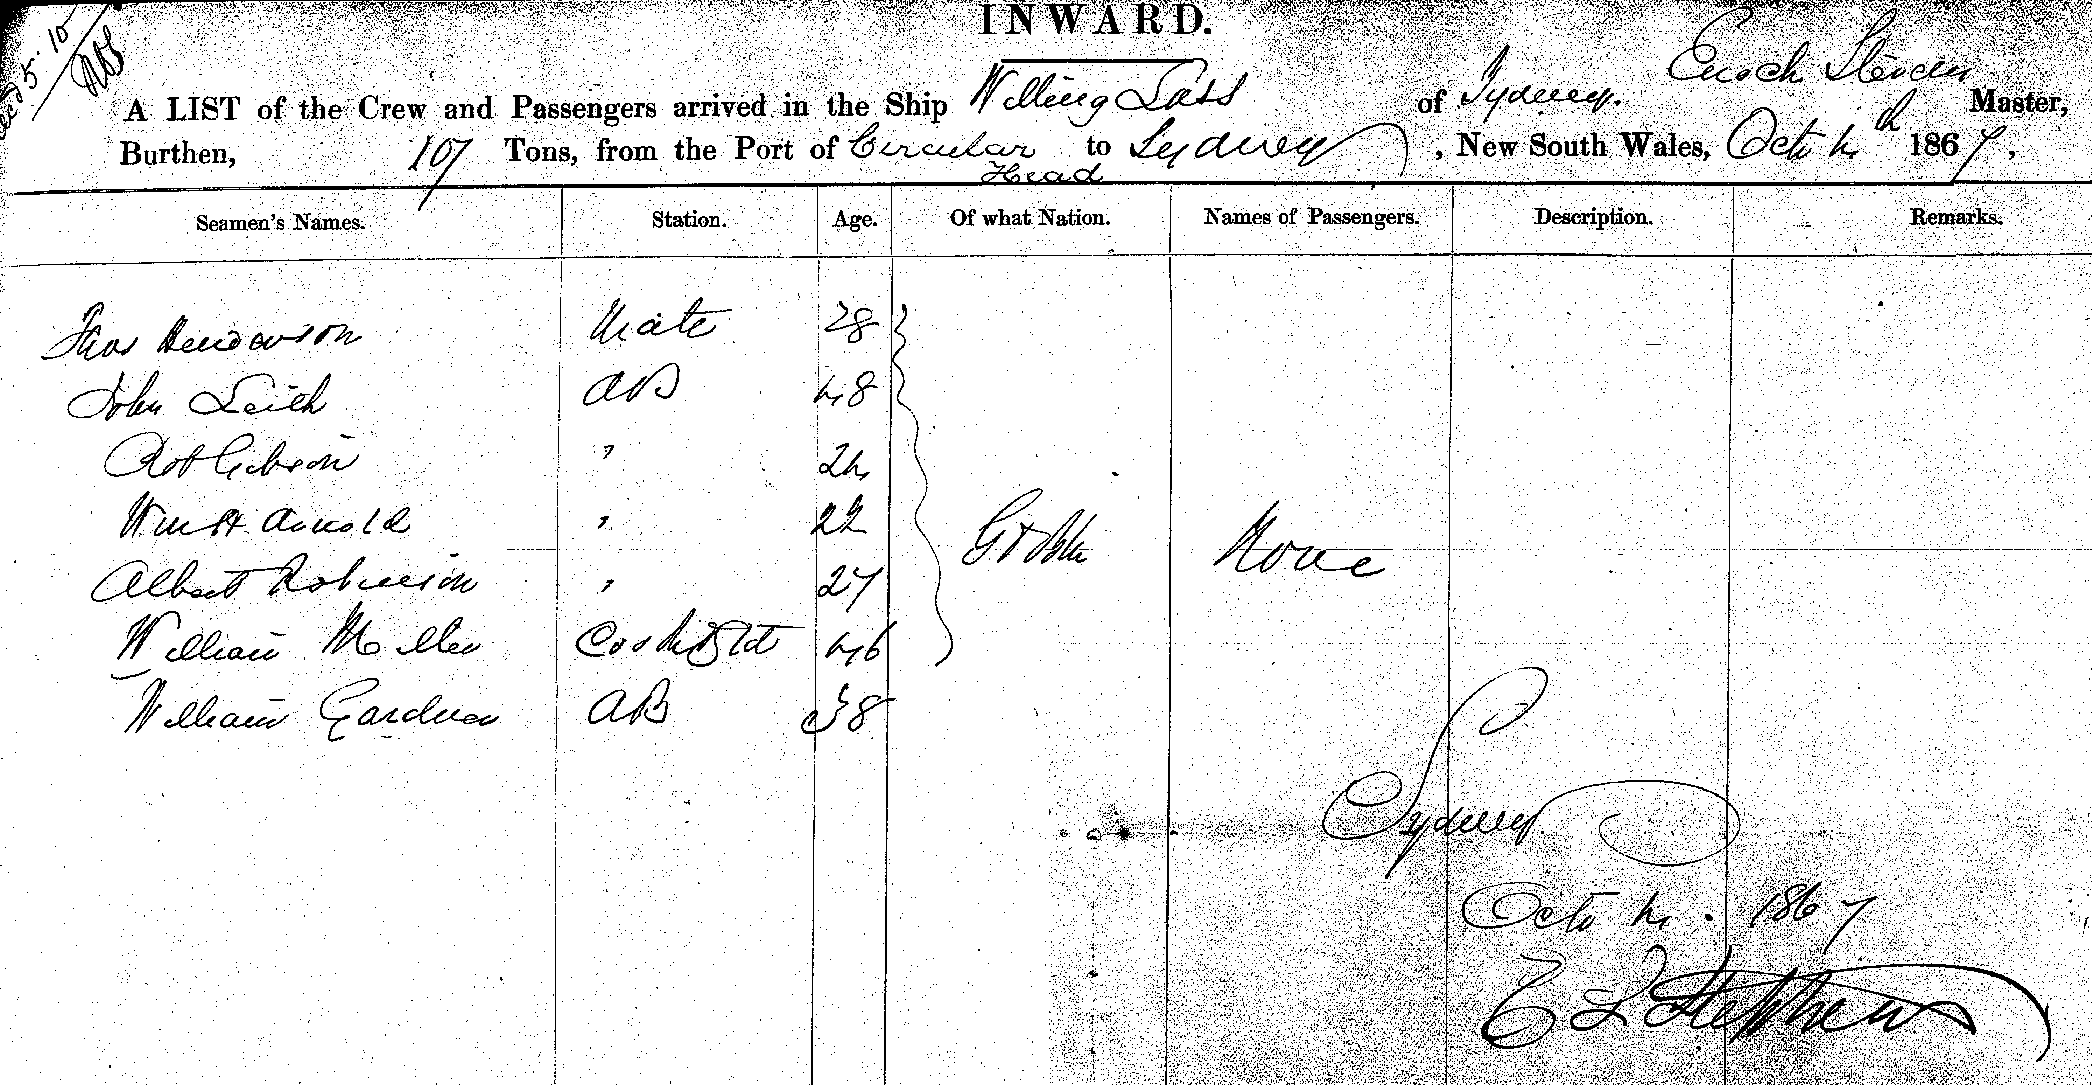 INWARD.
5.10
Enoch Steven
A LIST of the Crew and Passengers arrived in the Ship Willing Lass of Sydney. Master,
Burthen, 107 Tons, from the Port of Circular Head to Sydney, New South Wales, Octo 4th 1867,
Seamen's Names. Station. Age. Of what Nation. Names of Passengers. Description. Remarks.
Thos Henderson Mate 28
John Leith AB 48
Robt Gibson " 24
Wm H Arnold " 22
Albert Robinson " 27
Gt Bn None
William Miller Cook 46
William Gardner AB 38
Sydney
Octo 4. 1867
E L Stephens